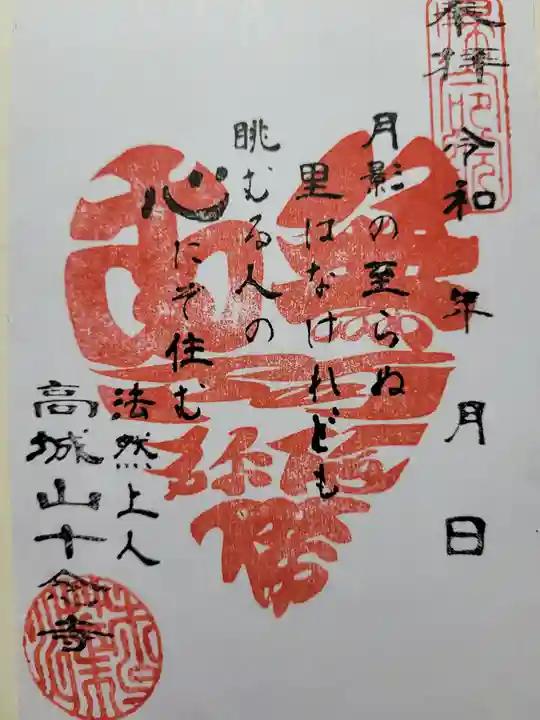 奉拝 令和 年 月 日
月影の至らぬ
里はなけれども
眺むる人の
心にぞ住む
法然上人
高城山十念寺
南無
阿弥陀佛